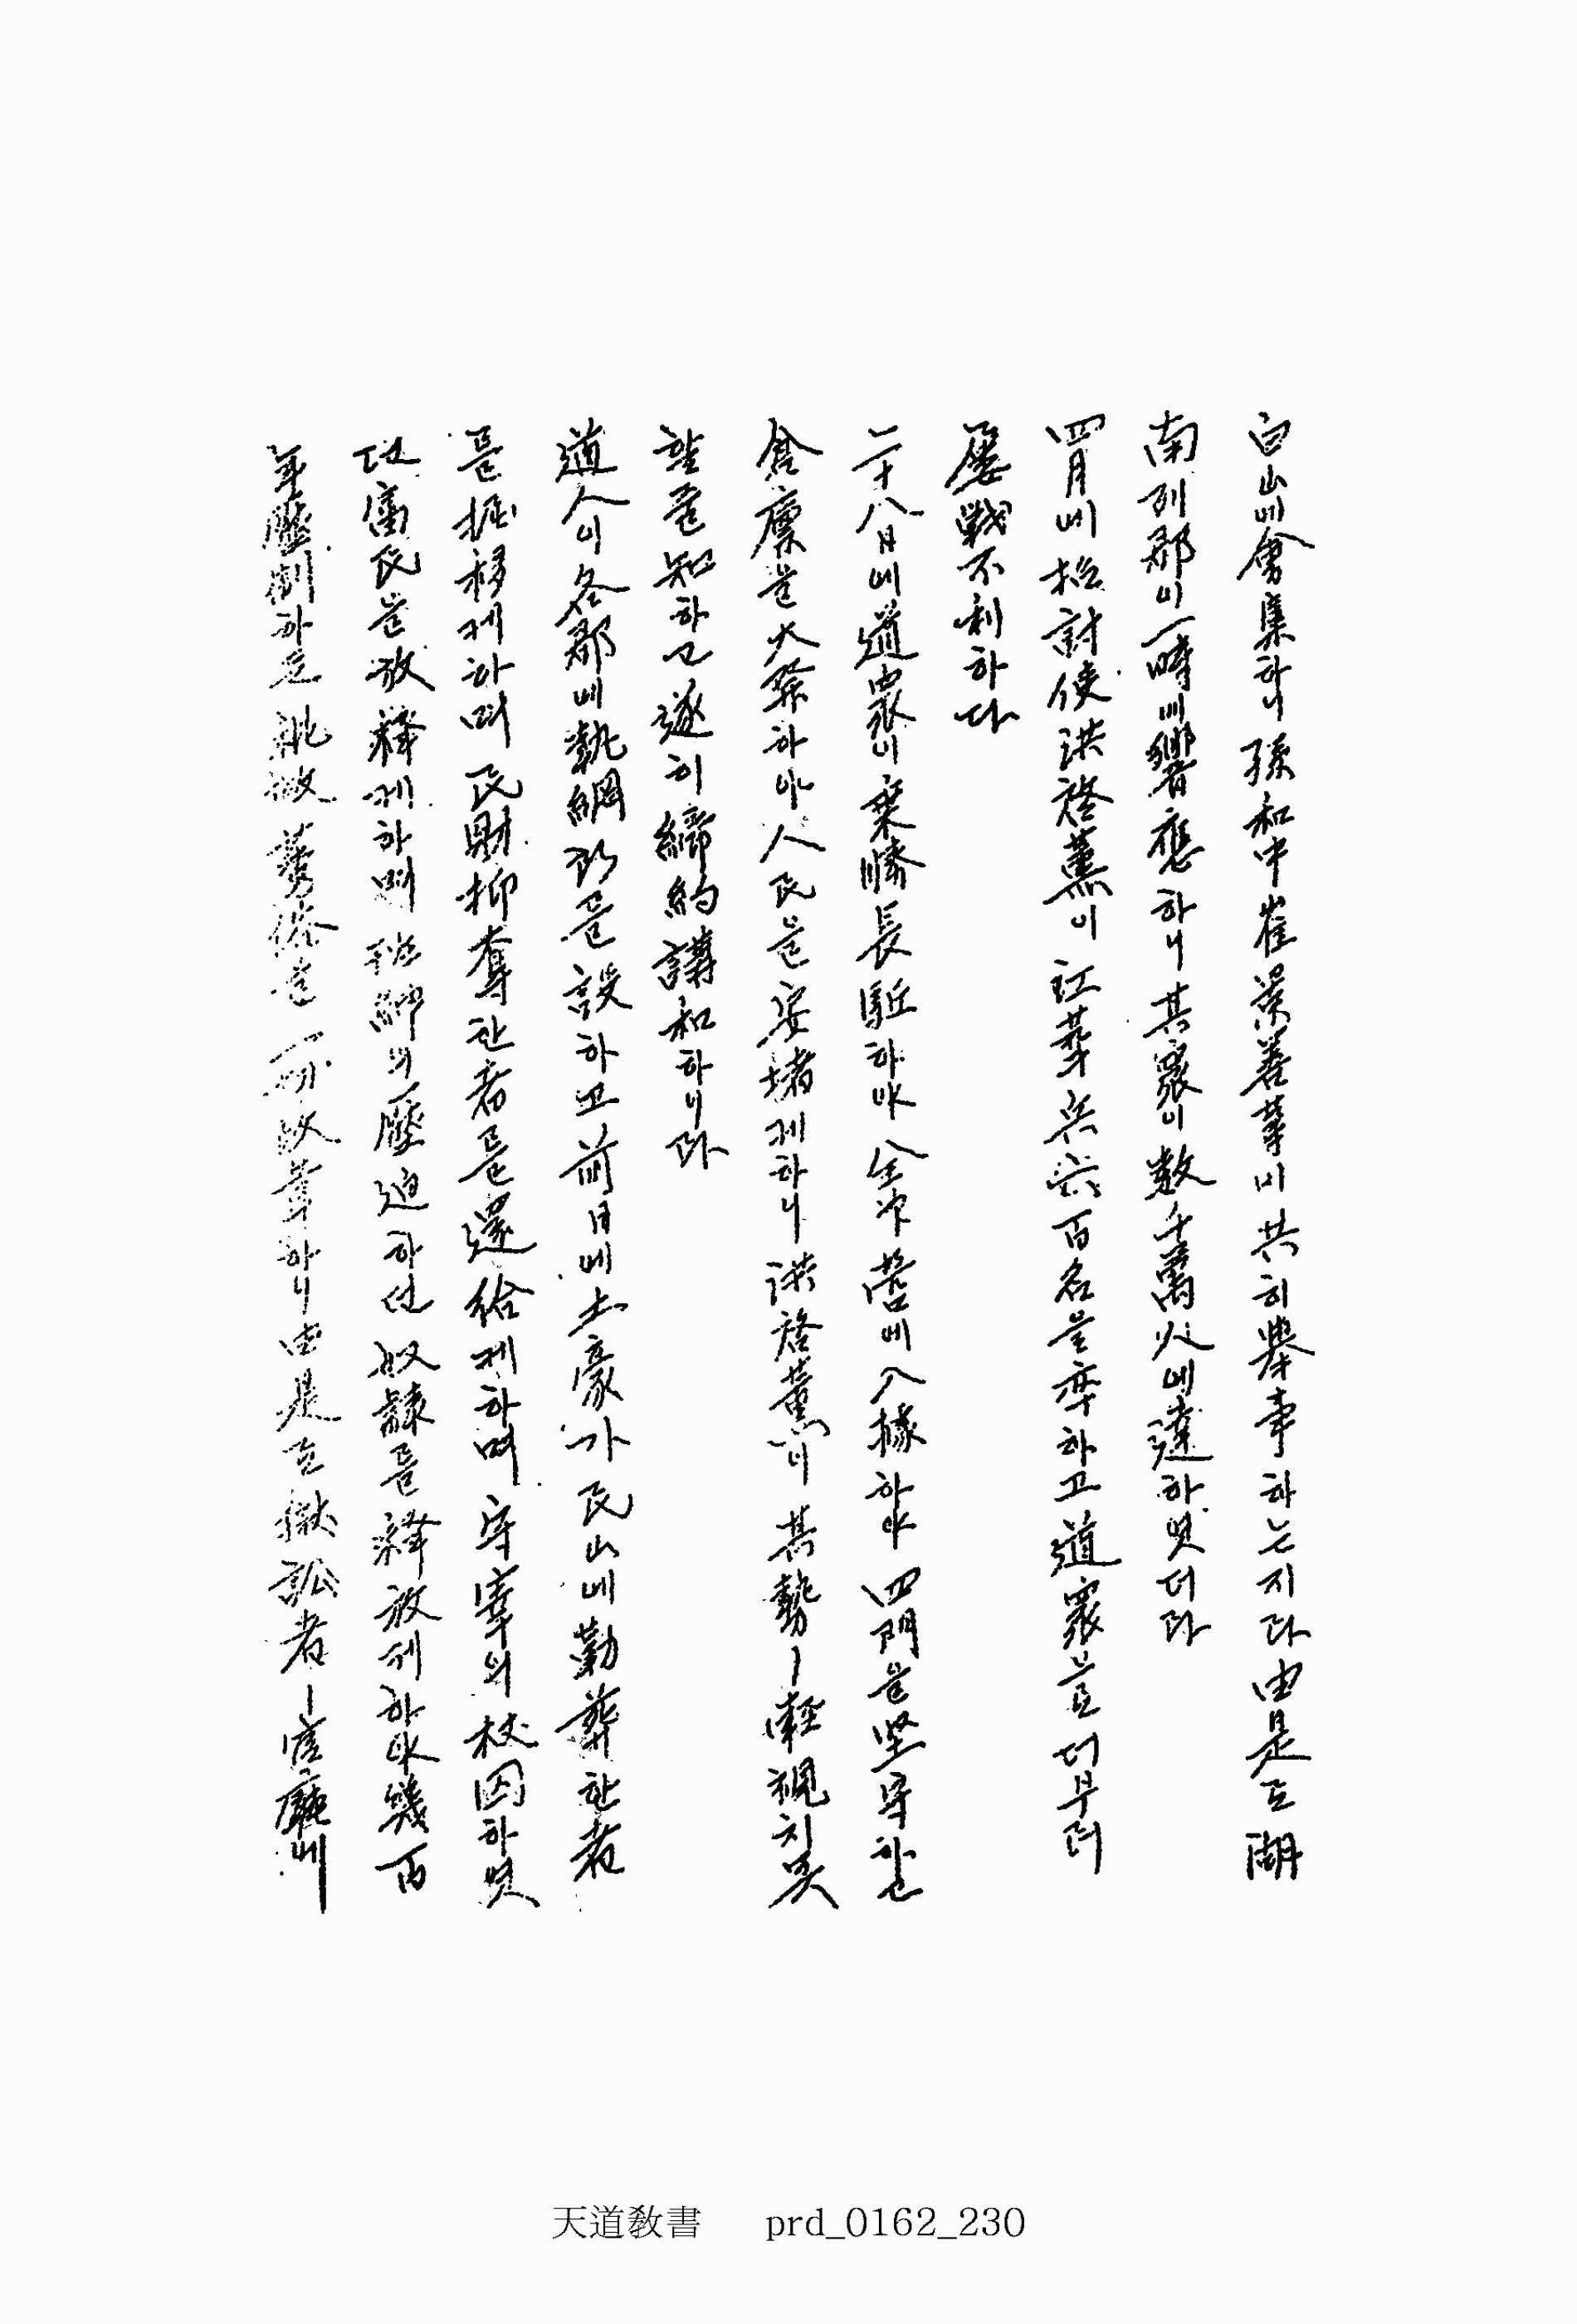 白山에會集하니 孫和中 崔景善 等이 共히 擧事하는지라 由是로 湖
南列郡이 一時에 響應하니 其衆이 數千萬人에 達하엿더라
四月에 招討使 洪啓薰이 江華兵 六百名을 率하고 道衆으로 더부러
屢戰不利하다
二十八日에 道衆이 乘勝長駈하야 全州營에 入據하야 四門을 坚守하고
倉廩을 大發하야 人民을 安堵케하니 洪啓薰이 其勢ㅣ 輕視치못
할줄 知하고 遂히 締約講和하니라
道人이 各郡에 執綱所를 設하고 前日에 土豪가 民山에 勤葬한者
를 掘移케하며 民財 抑奪한者를 還給케하며 守宰의 杖囚하엿
던 富民을 放釋케하며 班紳의 壓迫하던 奴隸를 釋放케하야 幾百
年 壓制하로 一切 改革하니 由是로 獄訟者ㅣ 官廳에